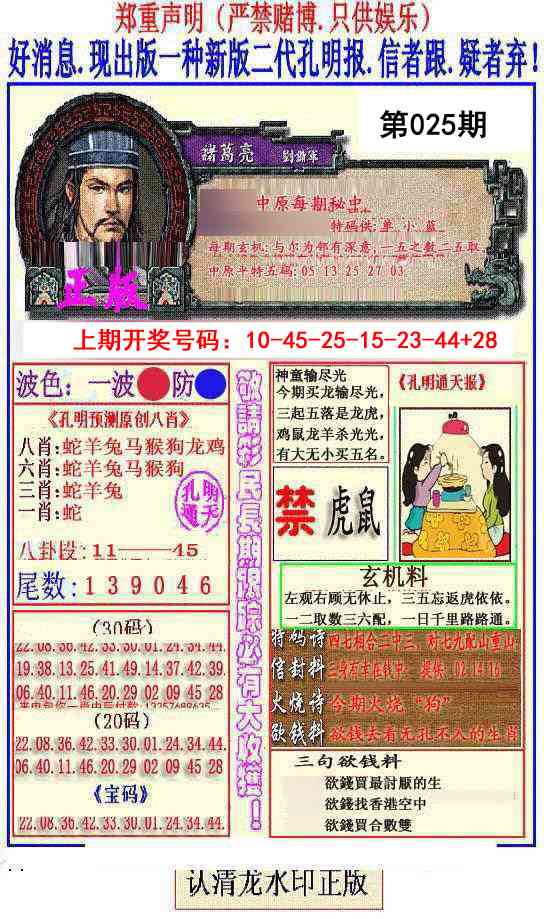 郑重声明（严禁赌博.只供娱乐）
好消息.现出版一种新版二代孔明报.信者跟.疑者弃!
第025期
諸葛亮
中原每期秘中
特码供:单_小_蓝_
每期玄机:与尔为邻有深意.一五之数二五取
中原平特五码:05 13 25 27 03
正版
上期开奖号码：10-45-25-15-23-44+28
波色：一波 防
《孔明预测原创八肖》
八肖:蛇羊兔马猴狗龙鸡
六肖:蛇羊兔马猴狗
三肖:蛇羊兔
一肖:蛇
孔明
通天
八卦段:11——45
尾数:139046
(30码)
22.08.36.42.33.30.01.24.34.44.
19.38.13.25.41.49.14.37.42.39.
06.40.11.46.20.29 02 09 45 28
(20码)
22.08.36.42.33.30.01.24.34.44.
06.40.11.46.20.29 02 09 45 28
《宝码》
22.08.36.42.33.30.01.24.34.44.
敬請彩民長期跟踪必有大收獲！
神童输尽光
今期买龙输尽光，
三起五落是龙虎，
鸡鼠龙羊杀光光，
有大无小买五名。
《孔明通天报》
禁 虎鼠
玄机料
左观右顾无休止，三五忘返虎依依。
一二取数三六配，一日千里路路通。
特码诗 四七相合三中三，对七九配山重山
信封料
火烧诗 今期火烧“狗”
欲钱料 欲钱去看无孔不入的生肖
三句欲钱料
欲錢買最討厭的生
欲錢找香港空中
欲錢買合數雙
认清龙水印正版